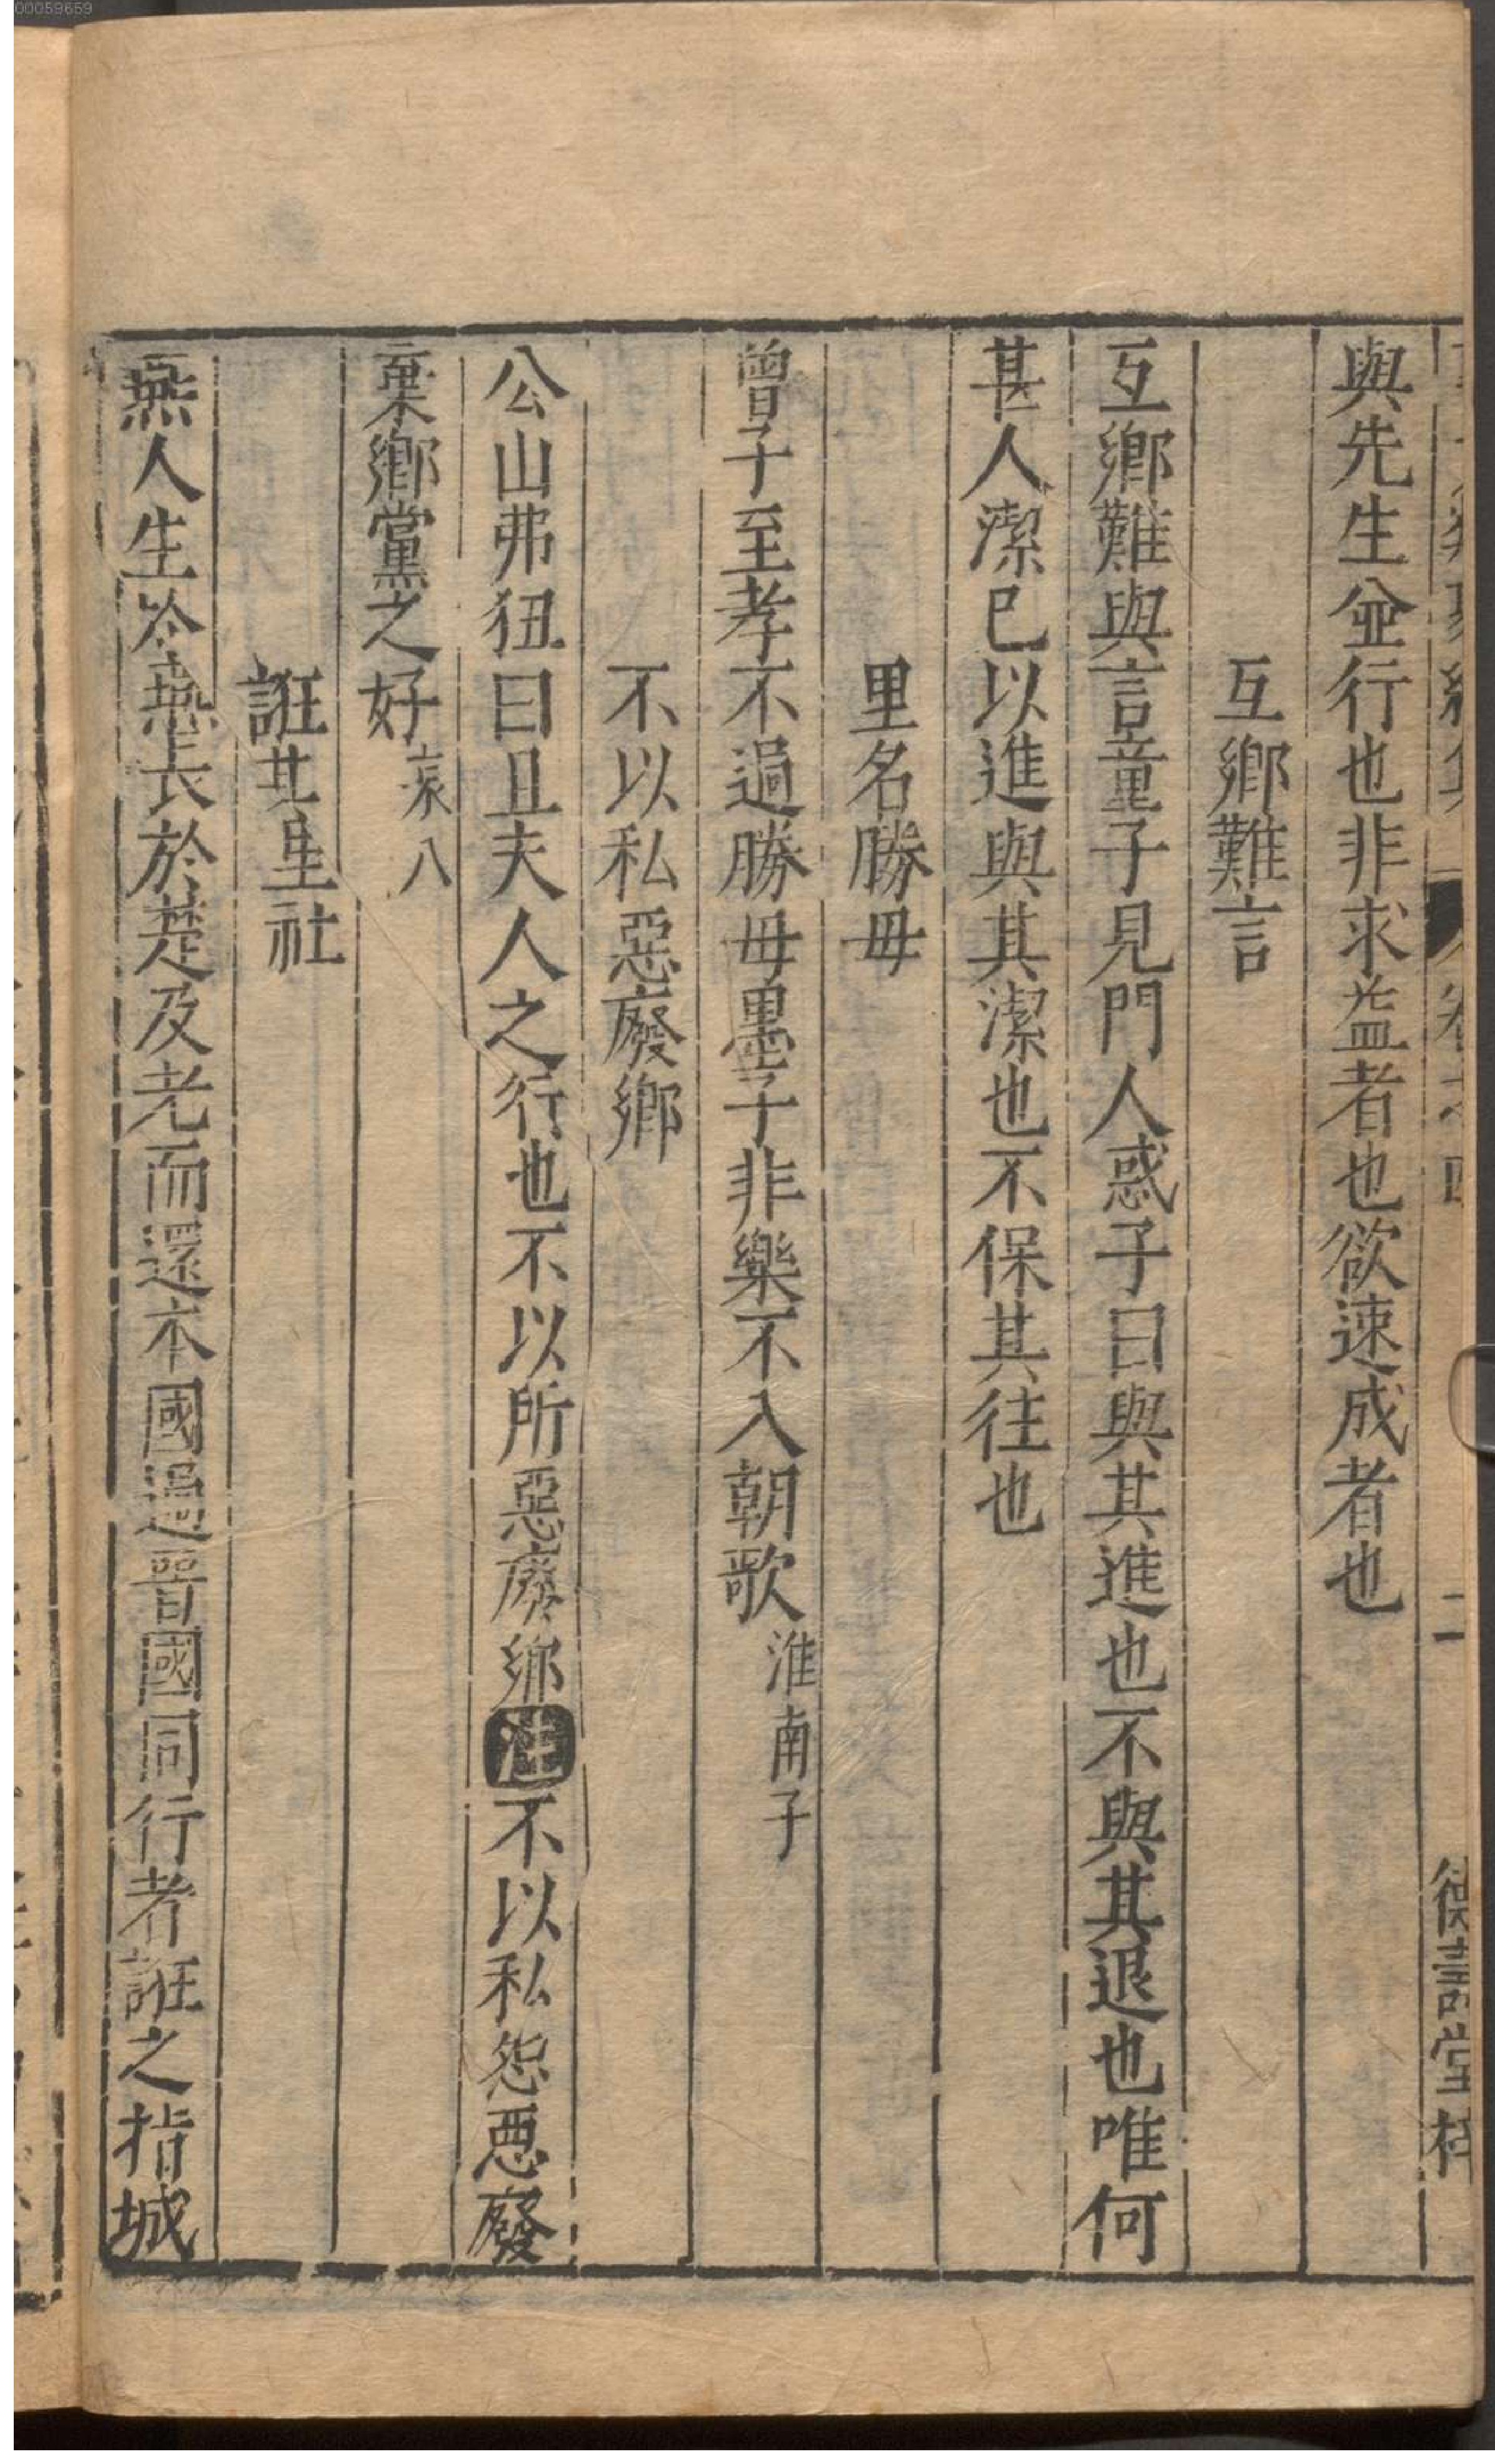 00059659
卷之四
二
德壽堂梓
與先生並行也非求益者也欲速成者也
互鄉難言
互鄉難與言童子見門人惑子曰與其進也不與其退也唯何
甚人潔已以進與其潔也不保其往也
里名勝毋
曾子至孝不過勝毋墨子非樂不入朝歌淮南子
不以私惡廢鄉
公山弗狃曰且夫人之行也不以所惡廢鄉注不以私怨惡廢
棄鄉黨之好哀八
誑其里社
燕人生於燕長於楚及老而還本國過晉國同行者誑之指城